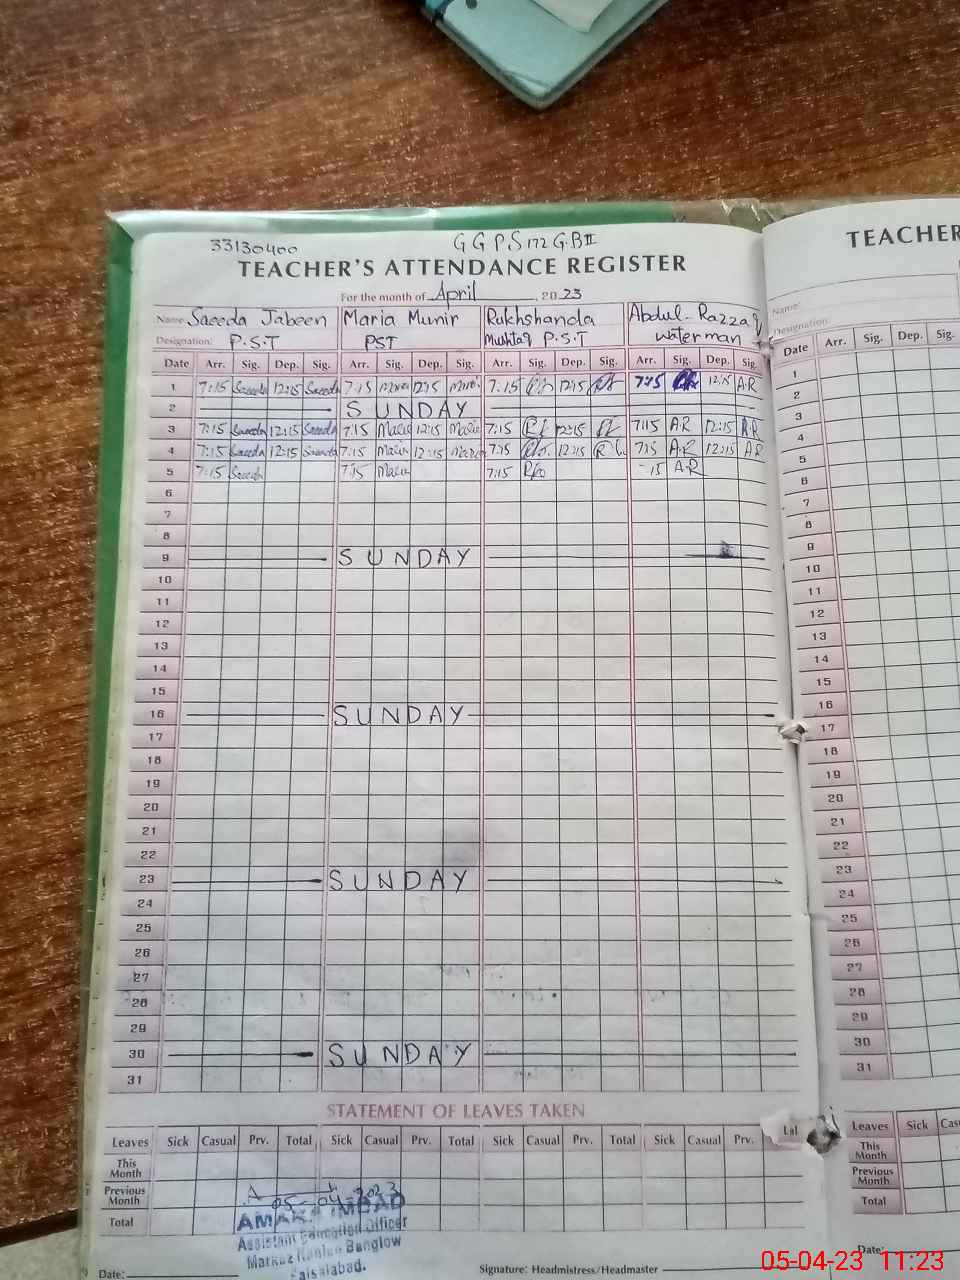 33130400 G G P S 172 G.B II
TEACHER'S ATTENDANCE REGISTER
For the month of April, 2023
Name: Saeeda Jabeen Maria Munir Rukhshanda Abdul-Razzaq
Designation: P.S.T PST Mushtaq P.S.T waterman
Date Arr. Sig. Dep. Sig. Arr. Sig. Dep. Sig. Arr. Sig. Dep. Sig. Arr. Sig. Dep. Sig.
1 7:15 Saeeda 12:15 Saeeda 7:15 12:15 7:15 12:15 7:15 12:15 A.R
2 SUNDAY
3 7:15 Saeeda 12:15 Saeeda 7:15 Maria 12:15 Maria 7:15 12:15 7:15 A.R 12:15 A.R
4 7:15 Saeeda 12:15 Saeeda 7:15 Maria 12:15 Maria 7:15 12:15 7:15 A.R 12:15 A.R
5 7:15 Saeeda 7:15 Maria 7:15 15 A.R
6
7
8
9 SUNDAY
10
11
12
13
14
15
16 SUNDAY
17
18
19
20
21
22
23 SUNDAY
24
25
26
27
28
29
30 SUNDAY
31
STATEMENT OF LEAVES TAKEN
Leaves Sick Casual Prv. Total Sick Casual Prv. Total Sick Casual Prv. Total Sick Casual Prv.
This Month
Previous Month
Total
05-04-2023
Assistant Education Officer
Markaz Banglow
Faisalabad.
Date: Signature: Headmistress/Headmaster
TEACHER
Name:
Designation:
Date Arr. Sig. Dep. Sig.
1
2
3
4
5
6
7
8
9
10
11
12
13
14
15
16
17
18
19
20
21
22
23
24
25
26
27
28
29
30
31
Leaves Sick
This Month
Previous Month
Total
Date:
05-04-23 11:23